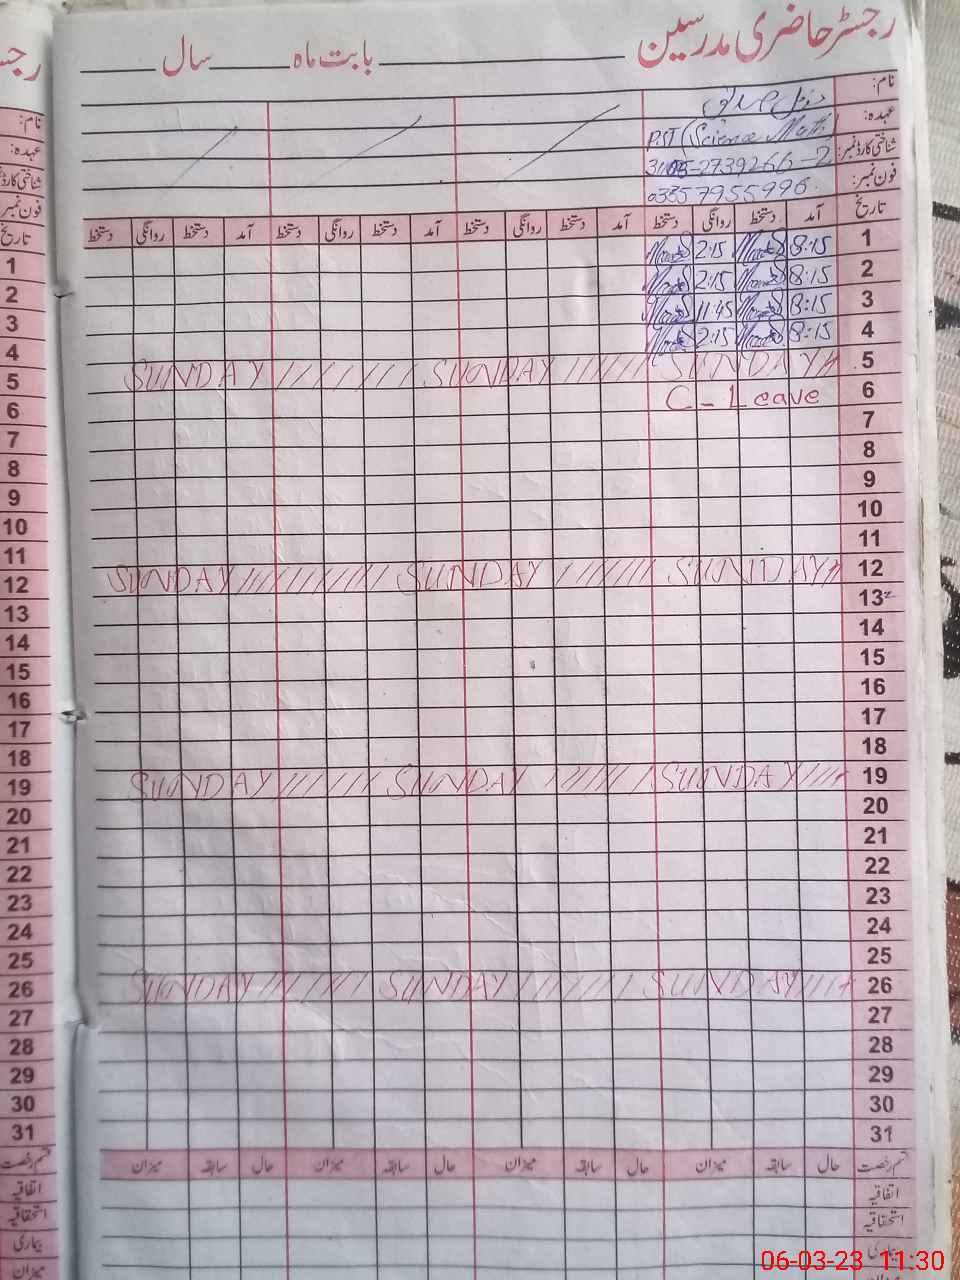 رجسٹر حاضری مدرسین ــــــــــ بابت ماہ ــــــــــ سال ــــــــــ
نام:
عہدہ: PST (Science Math)
شناختی کارڈ نمبر: 2739266-2
فون نمبر: 03357955996
تاریخ آمد دستخط روانگی دستخط آمد دستخط روانگی دستخط آمد دستخط روانگی دستخط آمد دستخط روانگی دستخط
1 8:15 2:15
2 8:15 2:15
3 8:15 11:45
4 8:15 2:15
5 SUNDAY SUNDAY SUNDAY
6 C-Leave
7
8
9
10
11
12 SUNDAY SUNDAY SUNDAY
13
14
15
16
17
18
19 SUNDAY SUNDAY SUNDAY
20
21
22
23
24
25
26 SUNDAY SUNDAY SUNDAY
27
28
29
30
31
قسم رخصت حال سابقہ میزان حال سابقہ میزان حال سابقہ میزان حال سابقہ میزان
اتفاقیہ
استحقاقیہ
بیماری
رجسـ
نام:
عہدہ:
شناختی کارڈ
فون نمبر
تاریخ
1
2
3
4
5
6
7
8
9
10
11
12
13
14
15
16
17
18
19
20
21
22
23
24
25
26
27
28
29
30
31
قسم رخصت
اتفاقیہ
استحقاقیہ
بیماری
میزان
06-03-23 11:30